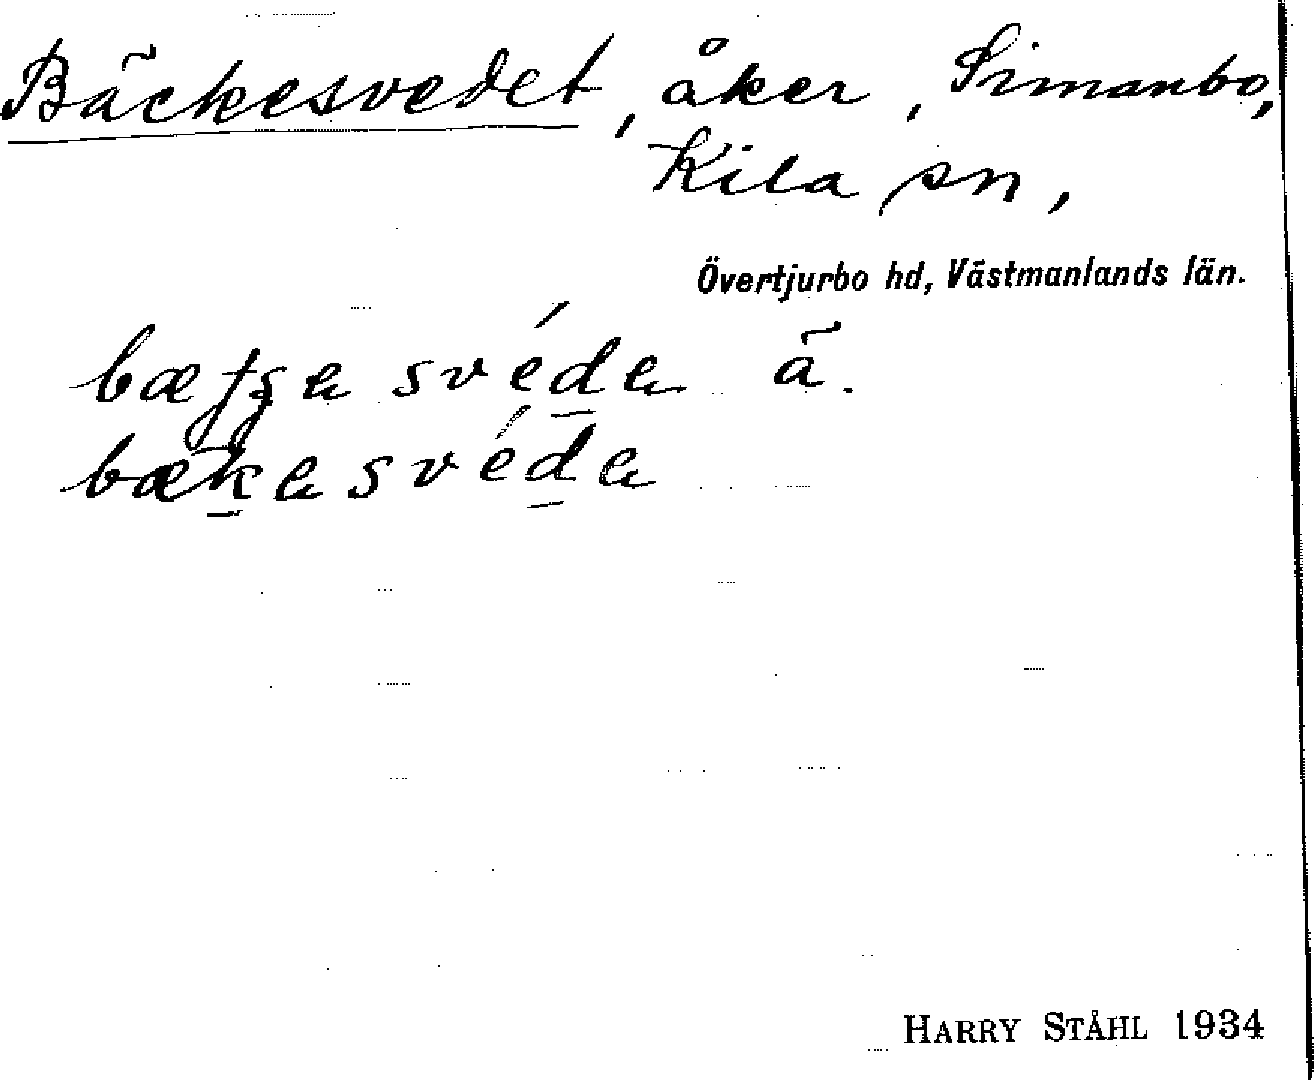 Bäckesvedet, åker, Simanbo,
Kila sn,
Övertjurbo hd, Västmanlands län.
svéda ä.
bækasvéda
HARRY STÅHL 1934